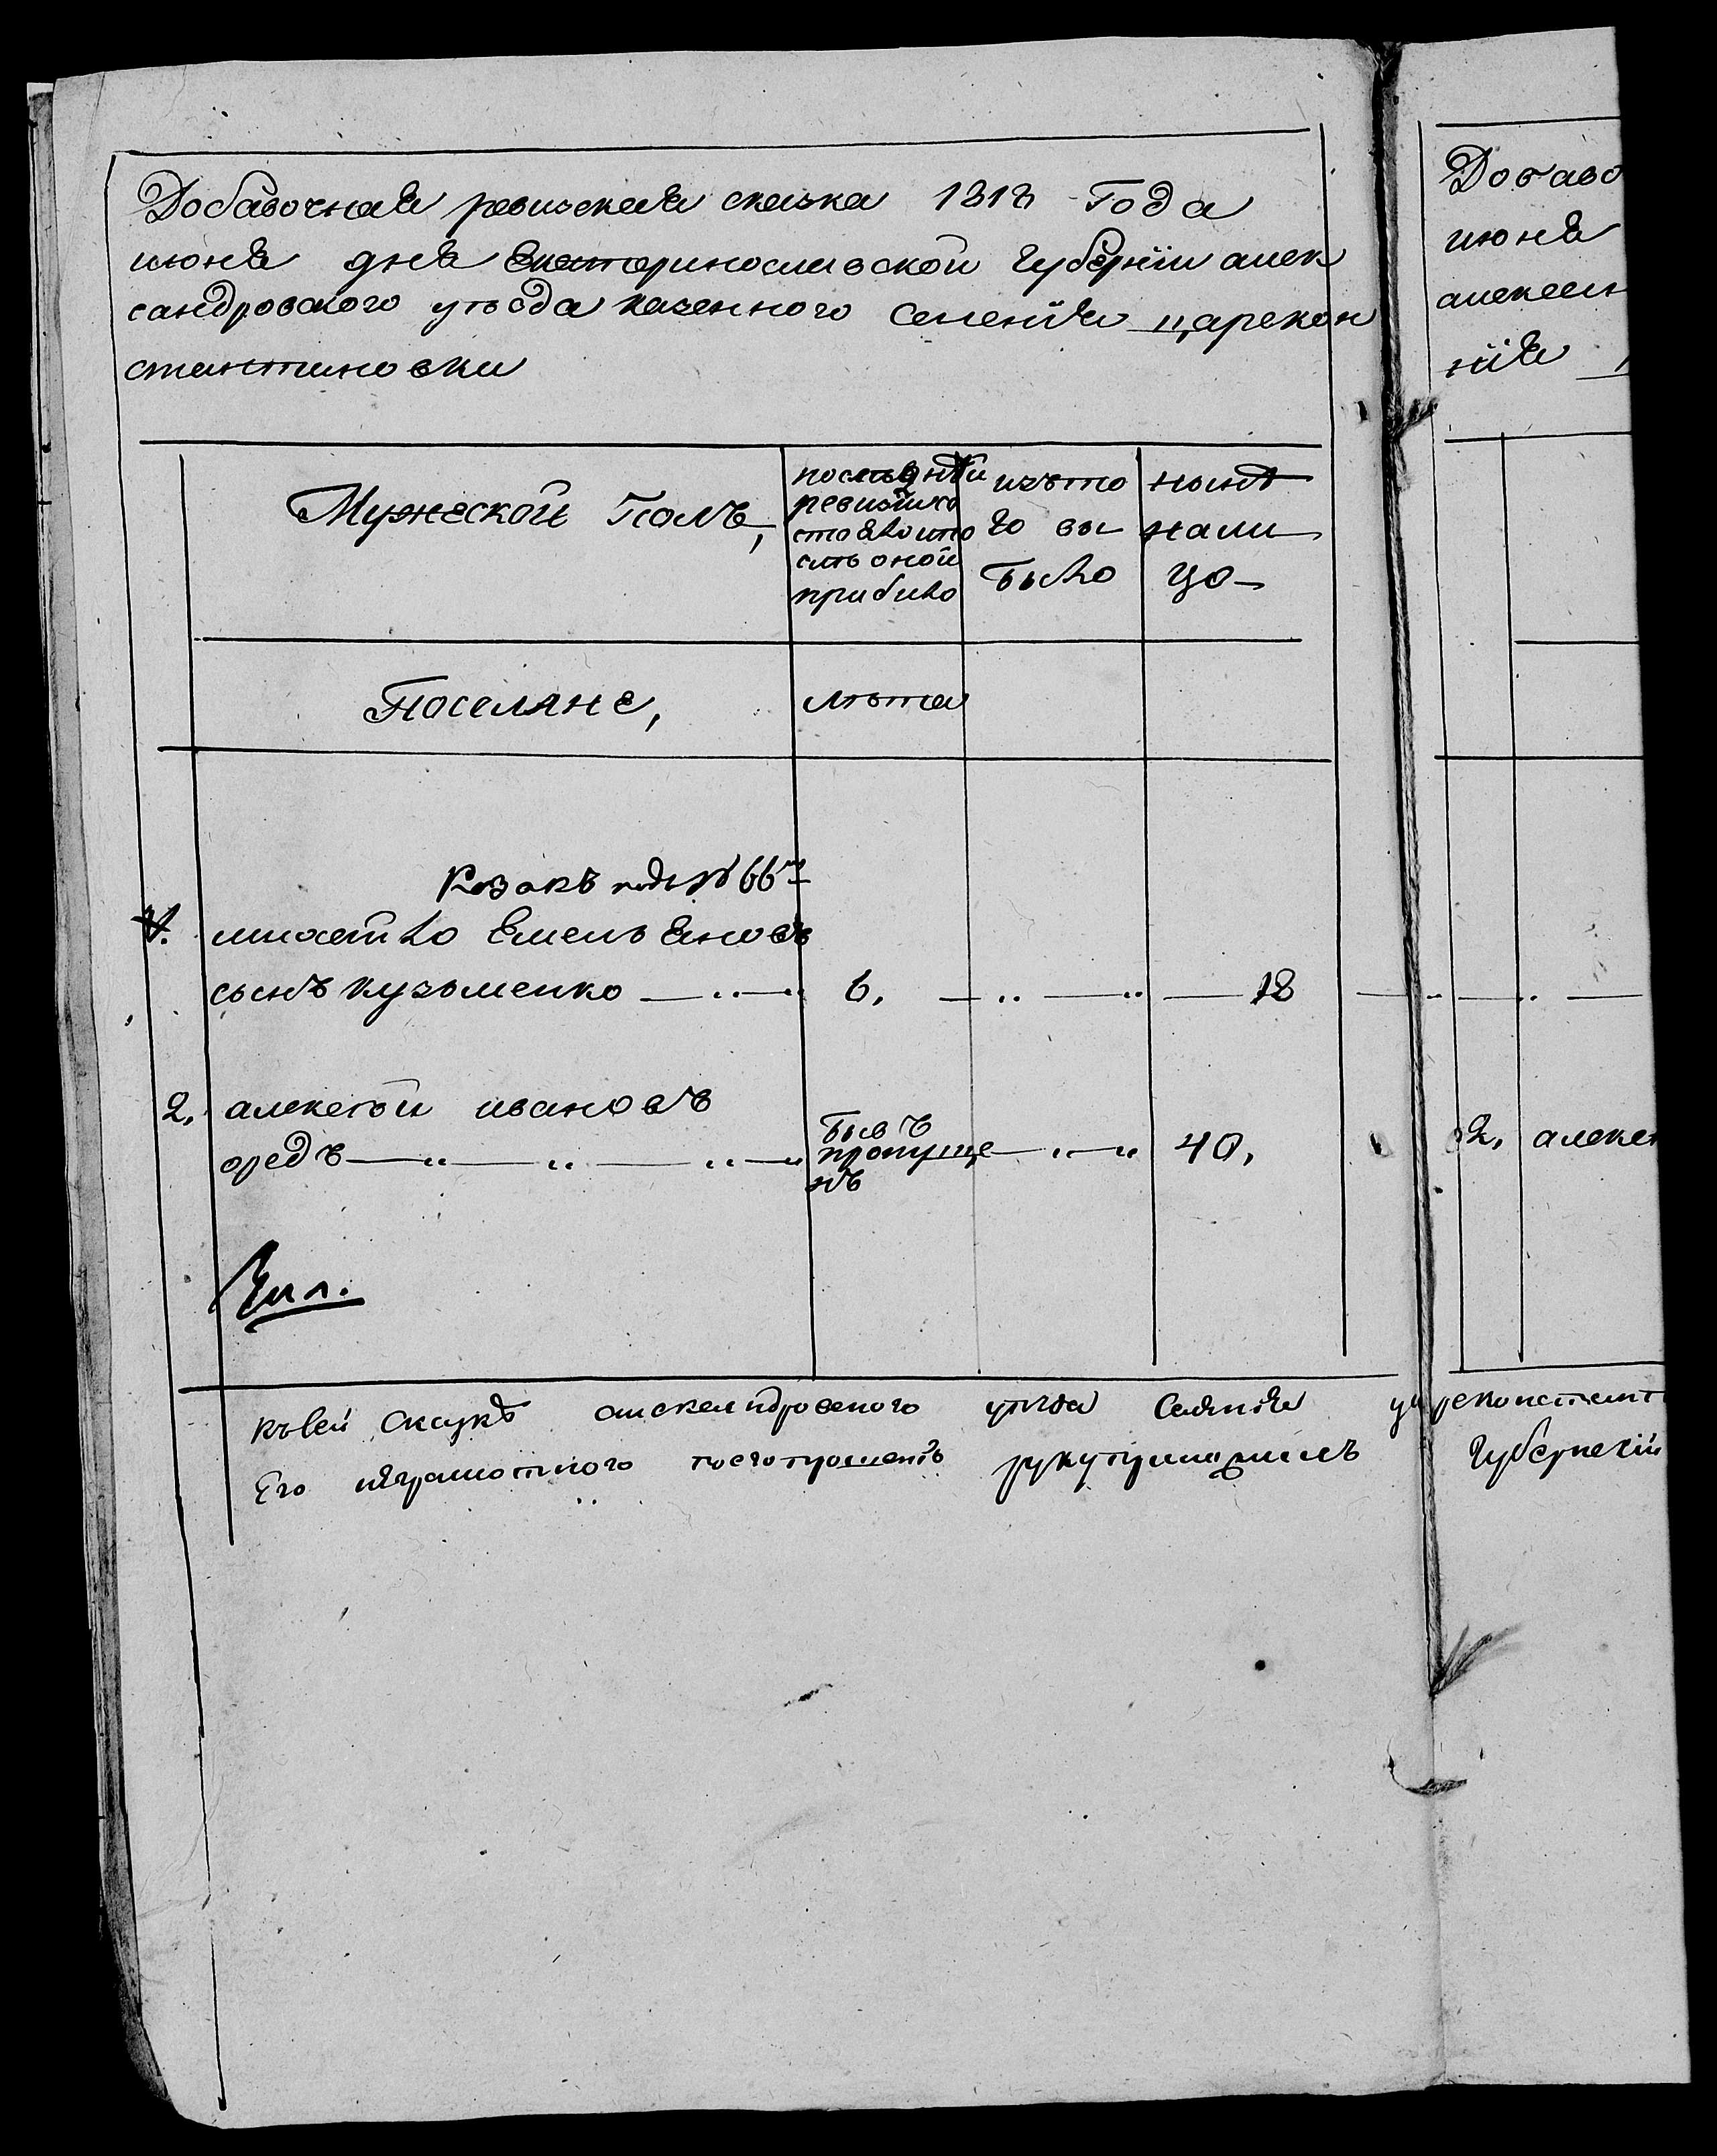 Добавочная ревизская сказка 1818 Года
июня дня Екатеринославской Губернии алек
сандровского уѣзда казенного Селения царекон
стантиновки
Мужеской Полъ,
послѣдней
ревизiи со
стояло ипо
слѣ оной
прибыло
изъ то
го вы
было
нынѣ
нали
цо
Поселяне,
лѣта
Козакъ подъ № 66м
1. Емельяновъ
сынъ кузьменко 6. 18
2. алексѣй ивановъ
оредъ
бывъ
пропуще
нъ
40,
Къ сей Скаскѣ александровского уѣзда Селения
Его неграмотного поегопрошенiю руку приложилъ
Добаво
июня
алексан
нiя
2, алексе
реконстант
Губернскiй